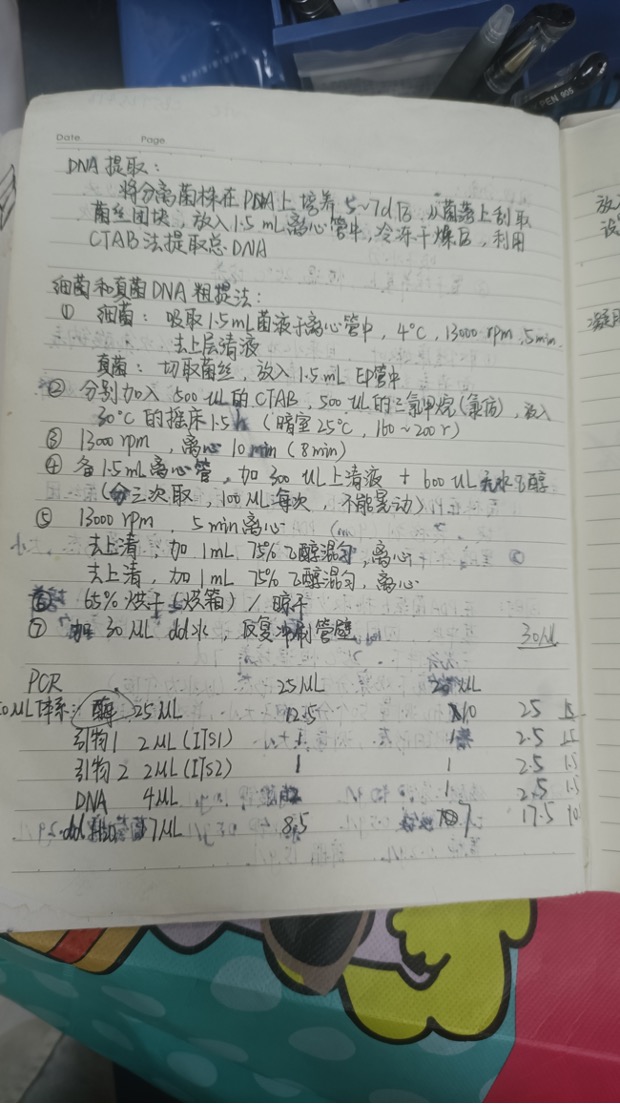 PEN 905
Date Page
DNA 提取：
将分离菌株在 PDA 上培养 5~7d后，从菌落上刮取
菌丝团块，放入1.5 mL 离心管中，冷冻干燥后，利用
CTAB 法提取总 DNA
细菌和真菌DNA粗提法：
① 细菌：吸取1.5mL菌液于离心管中，4℃，13000 rpm，5min
去上层清液
真菌：切取菌丝，放入1.5 mL EP管中
② 分别加入 500 UL的CTAB，500 UL的三氯甲烷(氯仿)，放入
30℃的摇床1.5h (暗室25℃，160~200r)
③ 13000 rpm，离心10min (8min)
④ 备1.5mL离心管，加300 UL上清液 + 600 UL无水乙醇
(分三次取，100 UL每次，不能晃动)
⑤ 13000 rpm，5 min离心
去上清，加1mL 75%乙醇混匀，离心
去上清，加1mL 75%乙醇混匀，离心
65%烘干(烘箱) / 晾干
⑦ 加 30 UL dd水，反复冲刷管壁 30UL
PCR 25UL UL
0UL体系：酶 25 UL 12.5 10 25 15
引物1 2UL (ITS1) 1 1 2.5 1.5
引物2 2UL (ITS2) 1 1 2.5 1.5
DNA 4UL 1 2.5 1.5
17UL 8.5 7 17.5 10